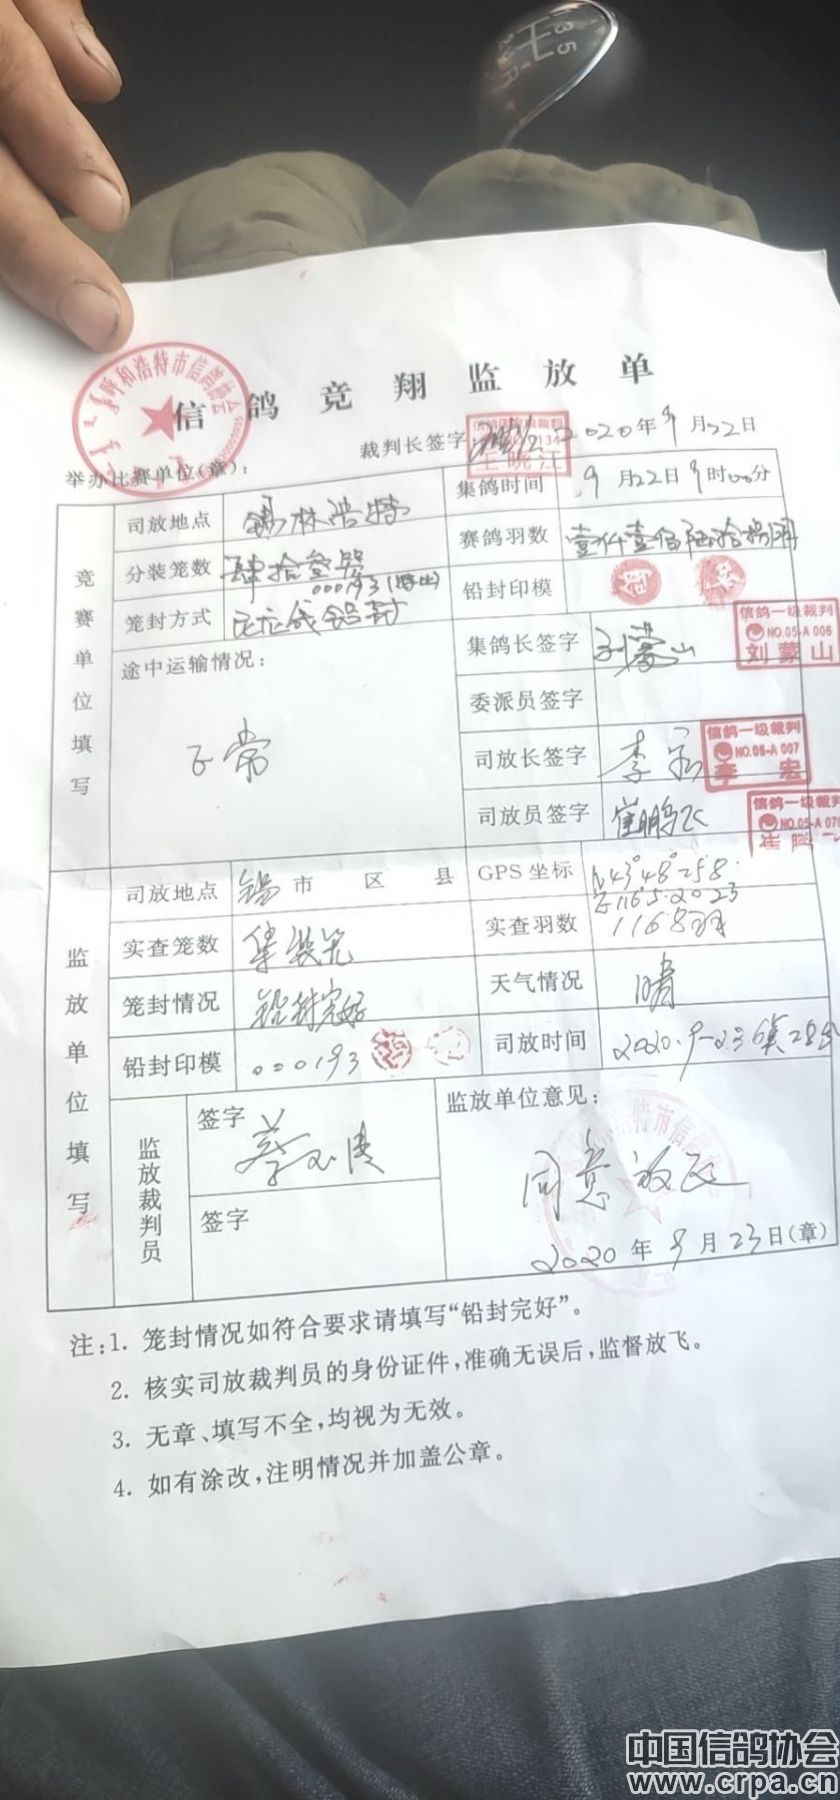 呼和浩特市信鸽协会
信鸽竞翔监放单
裁判长签字 2020年9月22日
王晓江
举办比赛单位(章):
竞赛单位填写
司放地点 锡林浩特 集鸽时间 9月22日9时00分
分装笼数 肆拾叁 赛鸽羽数 壹仟壹佰陆拾捌羽
000193(特比)
笼封方式 铅封 铅封印模
途中运输情况: 正常
集鸽长签字 刘蒙山
信鸽一级裁判
NO.05-A 006
刘蒙山
委派员签字
司放长签字 李宏
信鸽一级裁判
NO.05-A 007
李宏
司放员签字 崔鹏飞
信鸽一级裁判
NO.05-A 070
监放单位填写
司放地点 锡市 区 县 GPS坐标 N43°48°258
E116.5.2023
实查笼数 集装笼 实查羽数 1168羽
笼封情况 铅封完好 天气情况 晴
铅封印模 000193 司放时间 2020.9-23 6点28分
监放裁判员
签字
签字
监放单位意见:
同意放飞
2020年9月23日(章)
注:1. 笼封情况如符合要求请填写“铅封完好”。
2. 核实司放裁判员的身份证件,准确无误后,监督放飞。
3. 无章、填写不全,均视为无效。
4. 如有涂改,注明情况并加盖公章。
中国信鸽协会
www.crpa.cn